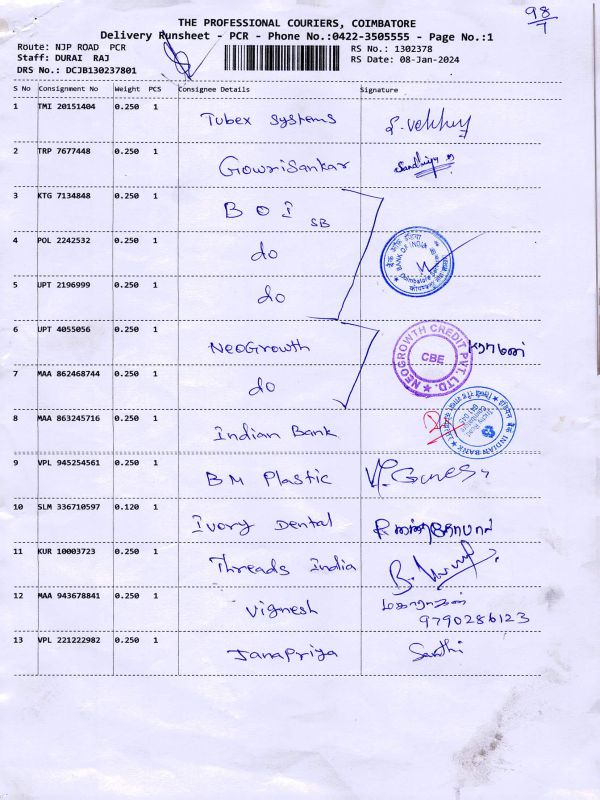 98/7
THE PROFESSIONAL COURIERS, COIMBATORE
Delivery Runsheet - PCR - Phone No.:0422-3505555 - Page No.:1
Route: NJP ROAD PCR RS No.: 1302378
Staff: DURAI RAJ RS Date: 08-Jan-2024
DRS No.: DCJB130237801
S No Consignment No Weight PCS Consignee Details Signature
1 TMI 20151404 0.250 1 Tubex Systems
2 TRP 7677448 0.250 1 GowriSankar Sandhiya
3 KTG 7134848 0.250 1 BOI SB
4 POL 2242532 0.250 1 do BANK OF INDIA
5 UPT 2196999 0.250 1 do
6 UPT 4055056 0.250 1 NeoGrowth NEOGROWTH CREDIT PVT. LTD. CBE
7 MAA 862468744 0.250 1 do
8 MAA 863245716 0.250 1 Indian Bank INDIAN BANK
9 VPL 945254561 0.250 1 BM Plastic
10 SLM 336710597 0.120 1 Ivory Dental
11 KUR 10003723 0.250 1 Threads India
12 MAA 943678841 0.250 1 Vignesh
9790286123
13 VPL 221222982 0.250 1 Janapriya Santhi